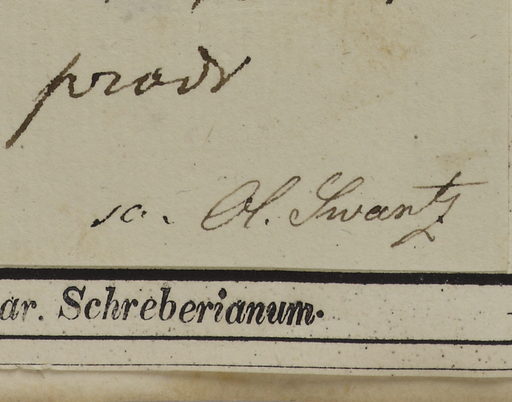 prodr
sc. Ol. Swartz
ar. Schreberianum.